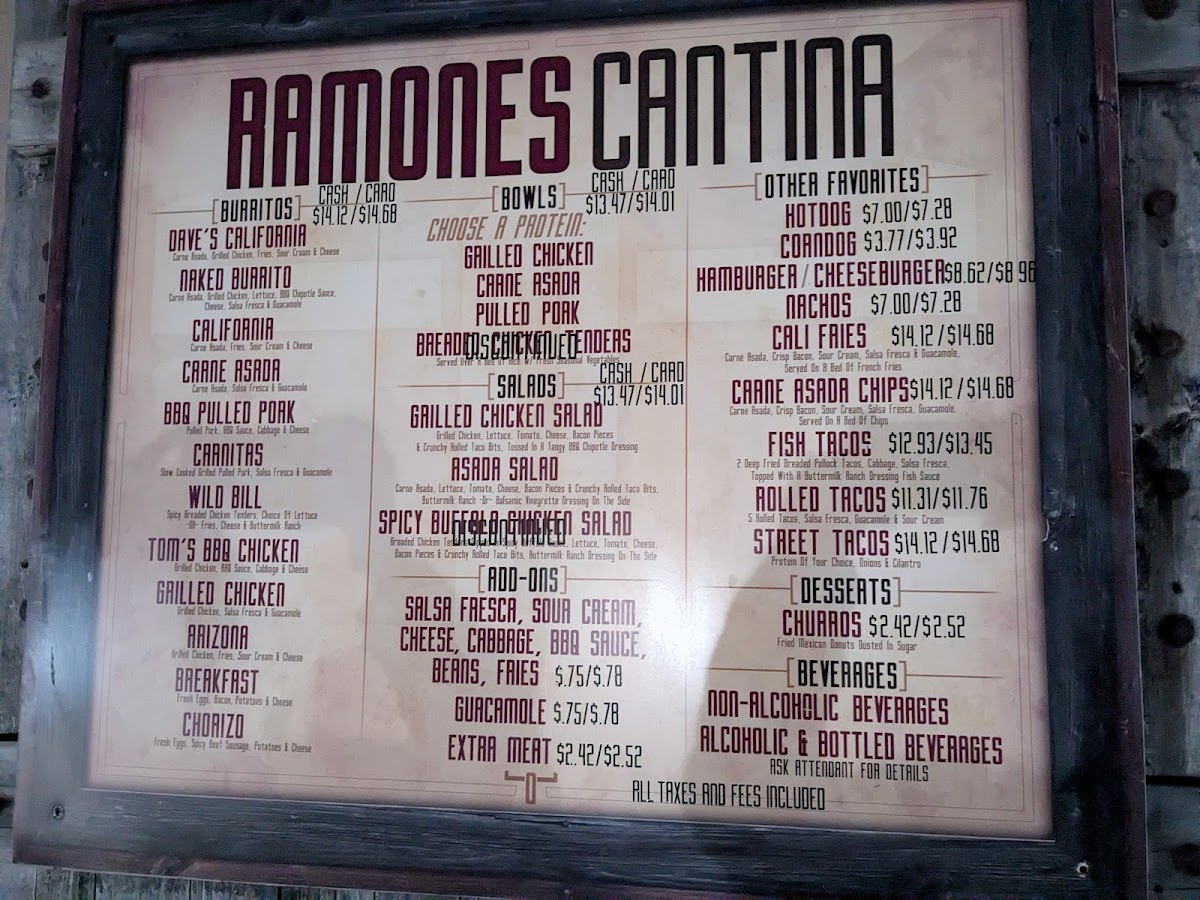 RAMONES CANTINA
[BURRITOS] CASH / CARD
$14.12/$14.68
DAVE'S CALIFORNIA
Carne Asada, Grilled Chicken, Fries, Sour Cream & Cheese
NAKED BURRITO
Carne Asada, Grilled Chicken, Lettuce, BBQ Chipotle Sauce,
Cheese, Salsa Fresca & Guacamole
CALIFORNIA
Carne Asada, Fries, Sour Cream & Cheese
CARNE ASADA
Carne Asada, Salsa Fresca & Guacamole
BBQ PULLED PORK
Pulled Pork, BBQ Sauce, Cabbage & Cheese
CARNITAS
Slow Cooked Grilled Pulled Pork, Salsa Fresca & Guacamole
WILD BILL
Spicy Breaded Chicken Tenders, Choice Of Lettuce
-OR- Fries, Cheese & Buttermilk Ranch
TOM'S BBQ CHICKEN
Grilled Chicken, BBQ Sauce, Cabbage & Cheese
GRILLED CHICKEN
Grilled Chicken, Salsa Fresca & Guacamole
ARIZONA
Grilled Chicken, Fries, Sour Cream & Cheese
BREAKFAST
Fresh Eggs, Bacon, Potatoes & Cheese
CHORIZO
Fresh Eggs, Spicy Beef Sausage, Potatoes & Cheese
[BOWLS] CASH / CARD
$13.47/$14.01
CHOOSE A PROTEIN:
GRILLED CHICKEN
CARNE ASADA
PULLED PORK
BREADED CHICKEN TENDERS
DISCONTINUED
Served Over A Bed Of Rice W/ Fresh Seasonal Vegetables
[SALADS] CASH / CARD
$13.47/$14.01
GRILLED CHICKEN SALAD
Grilled Chicken, Lettuce, Tomato, Cheese, Bacon Pieces
& Crunchy Rolled Taco Bits, Tossed In A Tangy BBQ Chipotle Dressing
ASADA SALAD
Carne Asada, Lettuce, Tomato, Cheese, Bacon Pieces & Crunchy Rolled Taco Bits,
Buttermilk Ranch -Or- Balsamic Vinegrette Dressing On The Side
SPICY BUFFALO CHICKEN SALAD
DISCONTINUED
Breaded Chicken Lettuce, Tomato, Cheese,
Bacon Pieces & Crunchy Rolled Taco Bits, Buttermilk Ranch Dressing On The Side
[ADD-ONS]
SALSA FRESCA, SOUR CREAM,
CHEESE, CABBAGE, BBQ SAUCE,
BEANS, FRIES $.75/$.78
GUACAMOLE $.75/$.78
EXTRA MEAT $2.42/$2.52
[OTHER FAVORITES]
HOTDOG $7.00/$7.28
CORNDOG $3.77/$3.92
HAMBURGER / CHEESEBURGER $8.62/$8.96
NACHOS $7.00/$7.28
CALI FRIES $14.12/$14.68
Carne Asada, Crisp Bacon, Sour Cream, Salsa Fresca & Guacamole,
Served On A Bed Of French Fries
CARNE ASADA CHIPS $14.12/$14.68
Carne Asada, Crisp Bacon, Sour Cream, Salsa Fresca, Guacamole,
Served On A Bed Of Chips
FISH TACOS $12.93/$13.45
2 Deep Fried Breaded Pollock Tacos, Cabbage, Salsa Fresca,
Topped With A Buttermilk Ranch Dressing Fish Sauce
ROLLED TACOS $11.31/$11.76
5 Rolled Tacos, Salsa Fresca, Guacamole & Sour Cream
STREET TACOS $14.12/$14.68
Protein Of Your Choice, Onions & Cilantro
[DESSERTS]
CHURROS $2.42/$2.52
Fried Mexican Donuts Dusted In Sugar
[BEVERAGES]
NON-ALCOHOLIC BEVERAGES
ALCOHOLIC & BOTTLED BEVERAGES
ASK ATTENDANT FOR DETAILS
ALL TAXES AND FEES INCLUDED